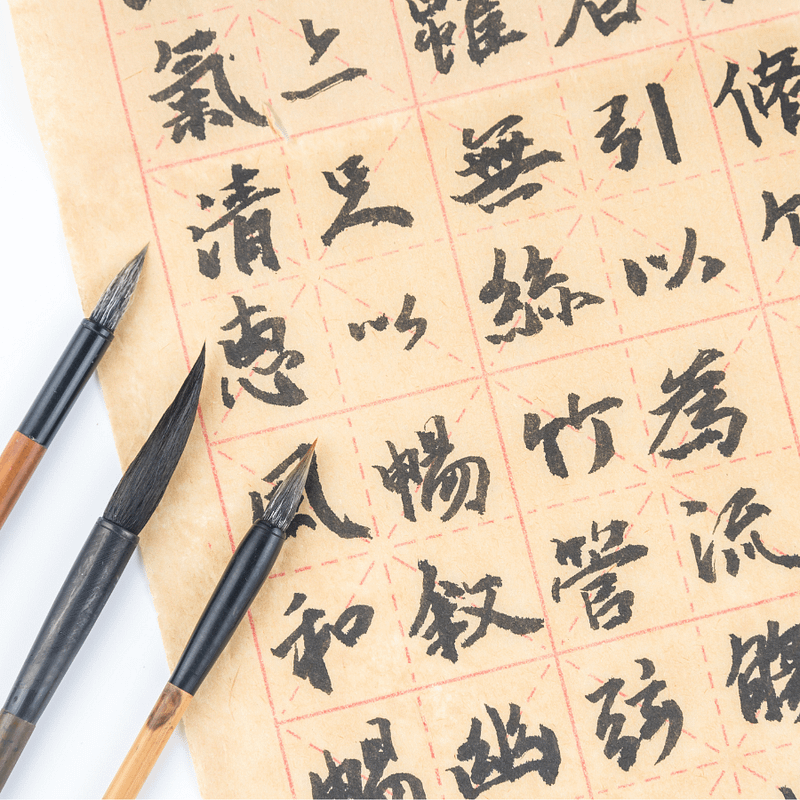 脩
引以為流觴
雖無絲竹管弦
上足以暢叙幽
氣清惠風和暢